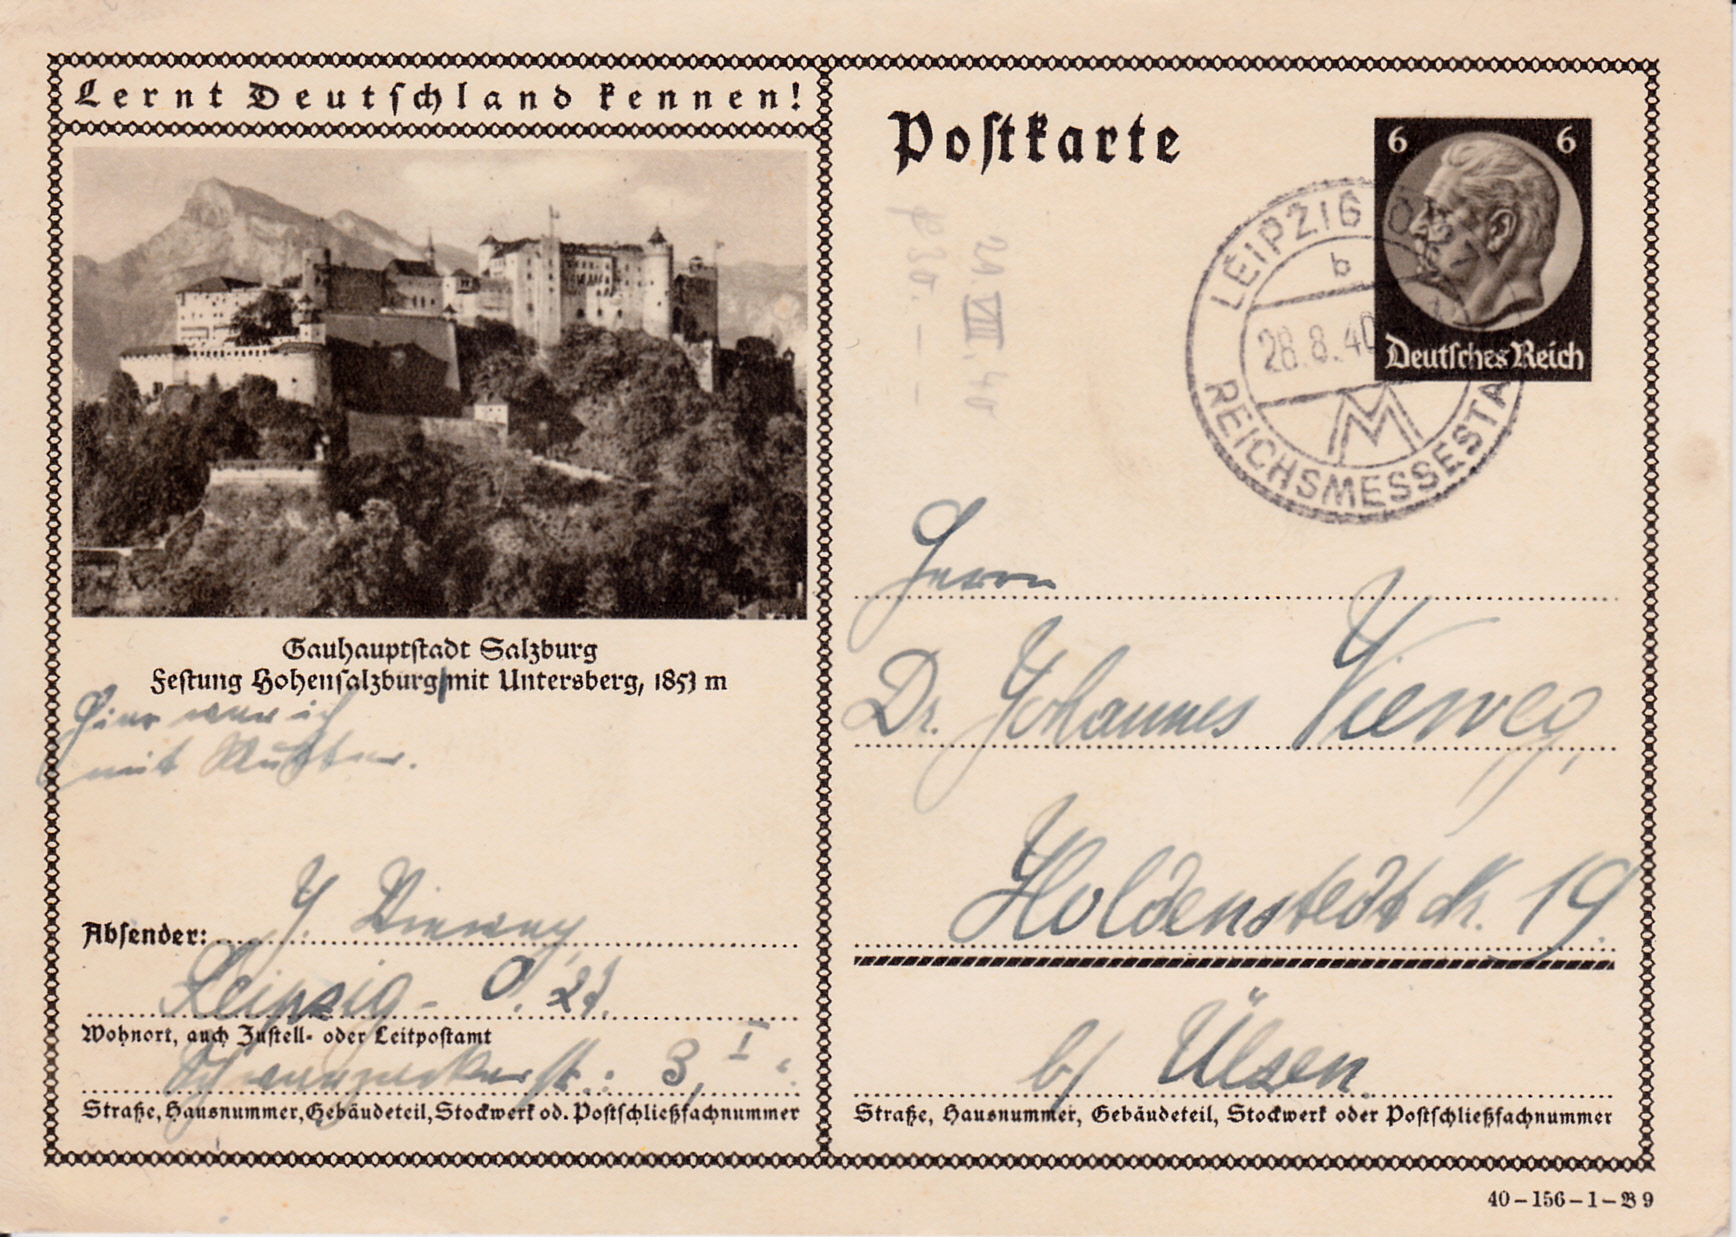 Lernt Deutschland kennen!
Gauhauptstadt Salzburg
Festung Hohensalzburg mit Untersberg, 1853 m
Hier war ich
mit Mutter.
Absender: J. Vieweg,
Leipzig - O. 27.
Wohnort, auch Zustell- oder Leitpostamt
3, I.
Straße, Hausnummer, Gebäudeteil, Stockwerk od. Postschließfachnummer
Postkarte
6 6
Deutsches Reich
LEIPZIG
b
28.8.40
M
REICHSMESSESTA
Herrn
Dr. Johannes Vieweg,
Holdenstedt Nr. 19.
b/ Ülsen.
Straße, Hausnummer, Gebäudeteil, Stockwerk oder Postschließfachnummer
40-156-1-B9